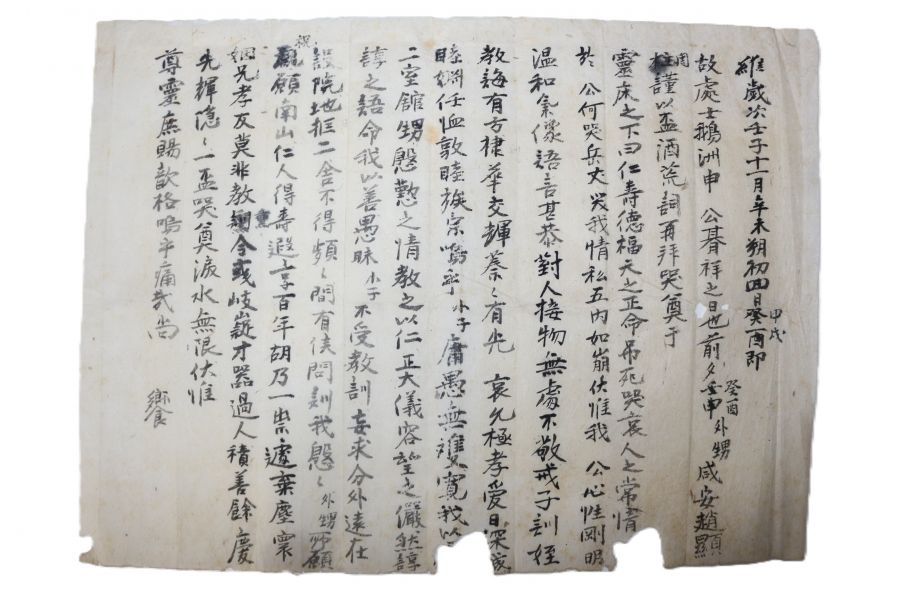 維歲次壬子十一月辛未朔初四日癸酉即
甲戌
故處士鵝洲申 公朞祥之日也前夕壬申外甥咸安趙顯
癸酉
周謹以盃酒荒詞再拜哭奠于
靈床之下曰仁壽德福天之正命吊死哭哀人之常情
於 公何哭岳丈哭我情私五內如崩伏惟我 公心性剛明
溫和氣像語言甚恭對人接物無處不敬戒子訓姪
教誨有方棣華交輝蔡〻有光 哀允極孝愛日深
睦婣任恤敦睦族宗嗚乎小子庸愚無雙寬我以
二室舘甥慇懃之情教之以仁正大儀容望之儼然諄
諄之語命我以善愚昧小子不受教訓妄求分外遠在
院地推二舍不得頻〻間有侯問訓我慇〻外甥所願
祝
願南山仁人得壽遐享百年胡乃一祟遽棄塵寰
兄孝友莫非教薰令彧岐嶷才器過人積善餘慶
先輝隱〻一盃哭奠淚水無限伏惟
尊靈庶賜歆格嗚乎痛哉尚
饗